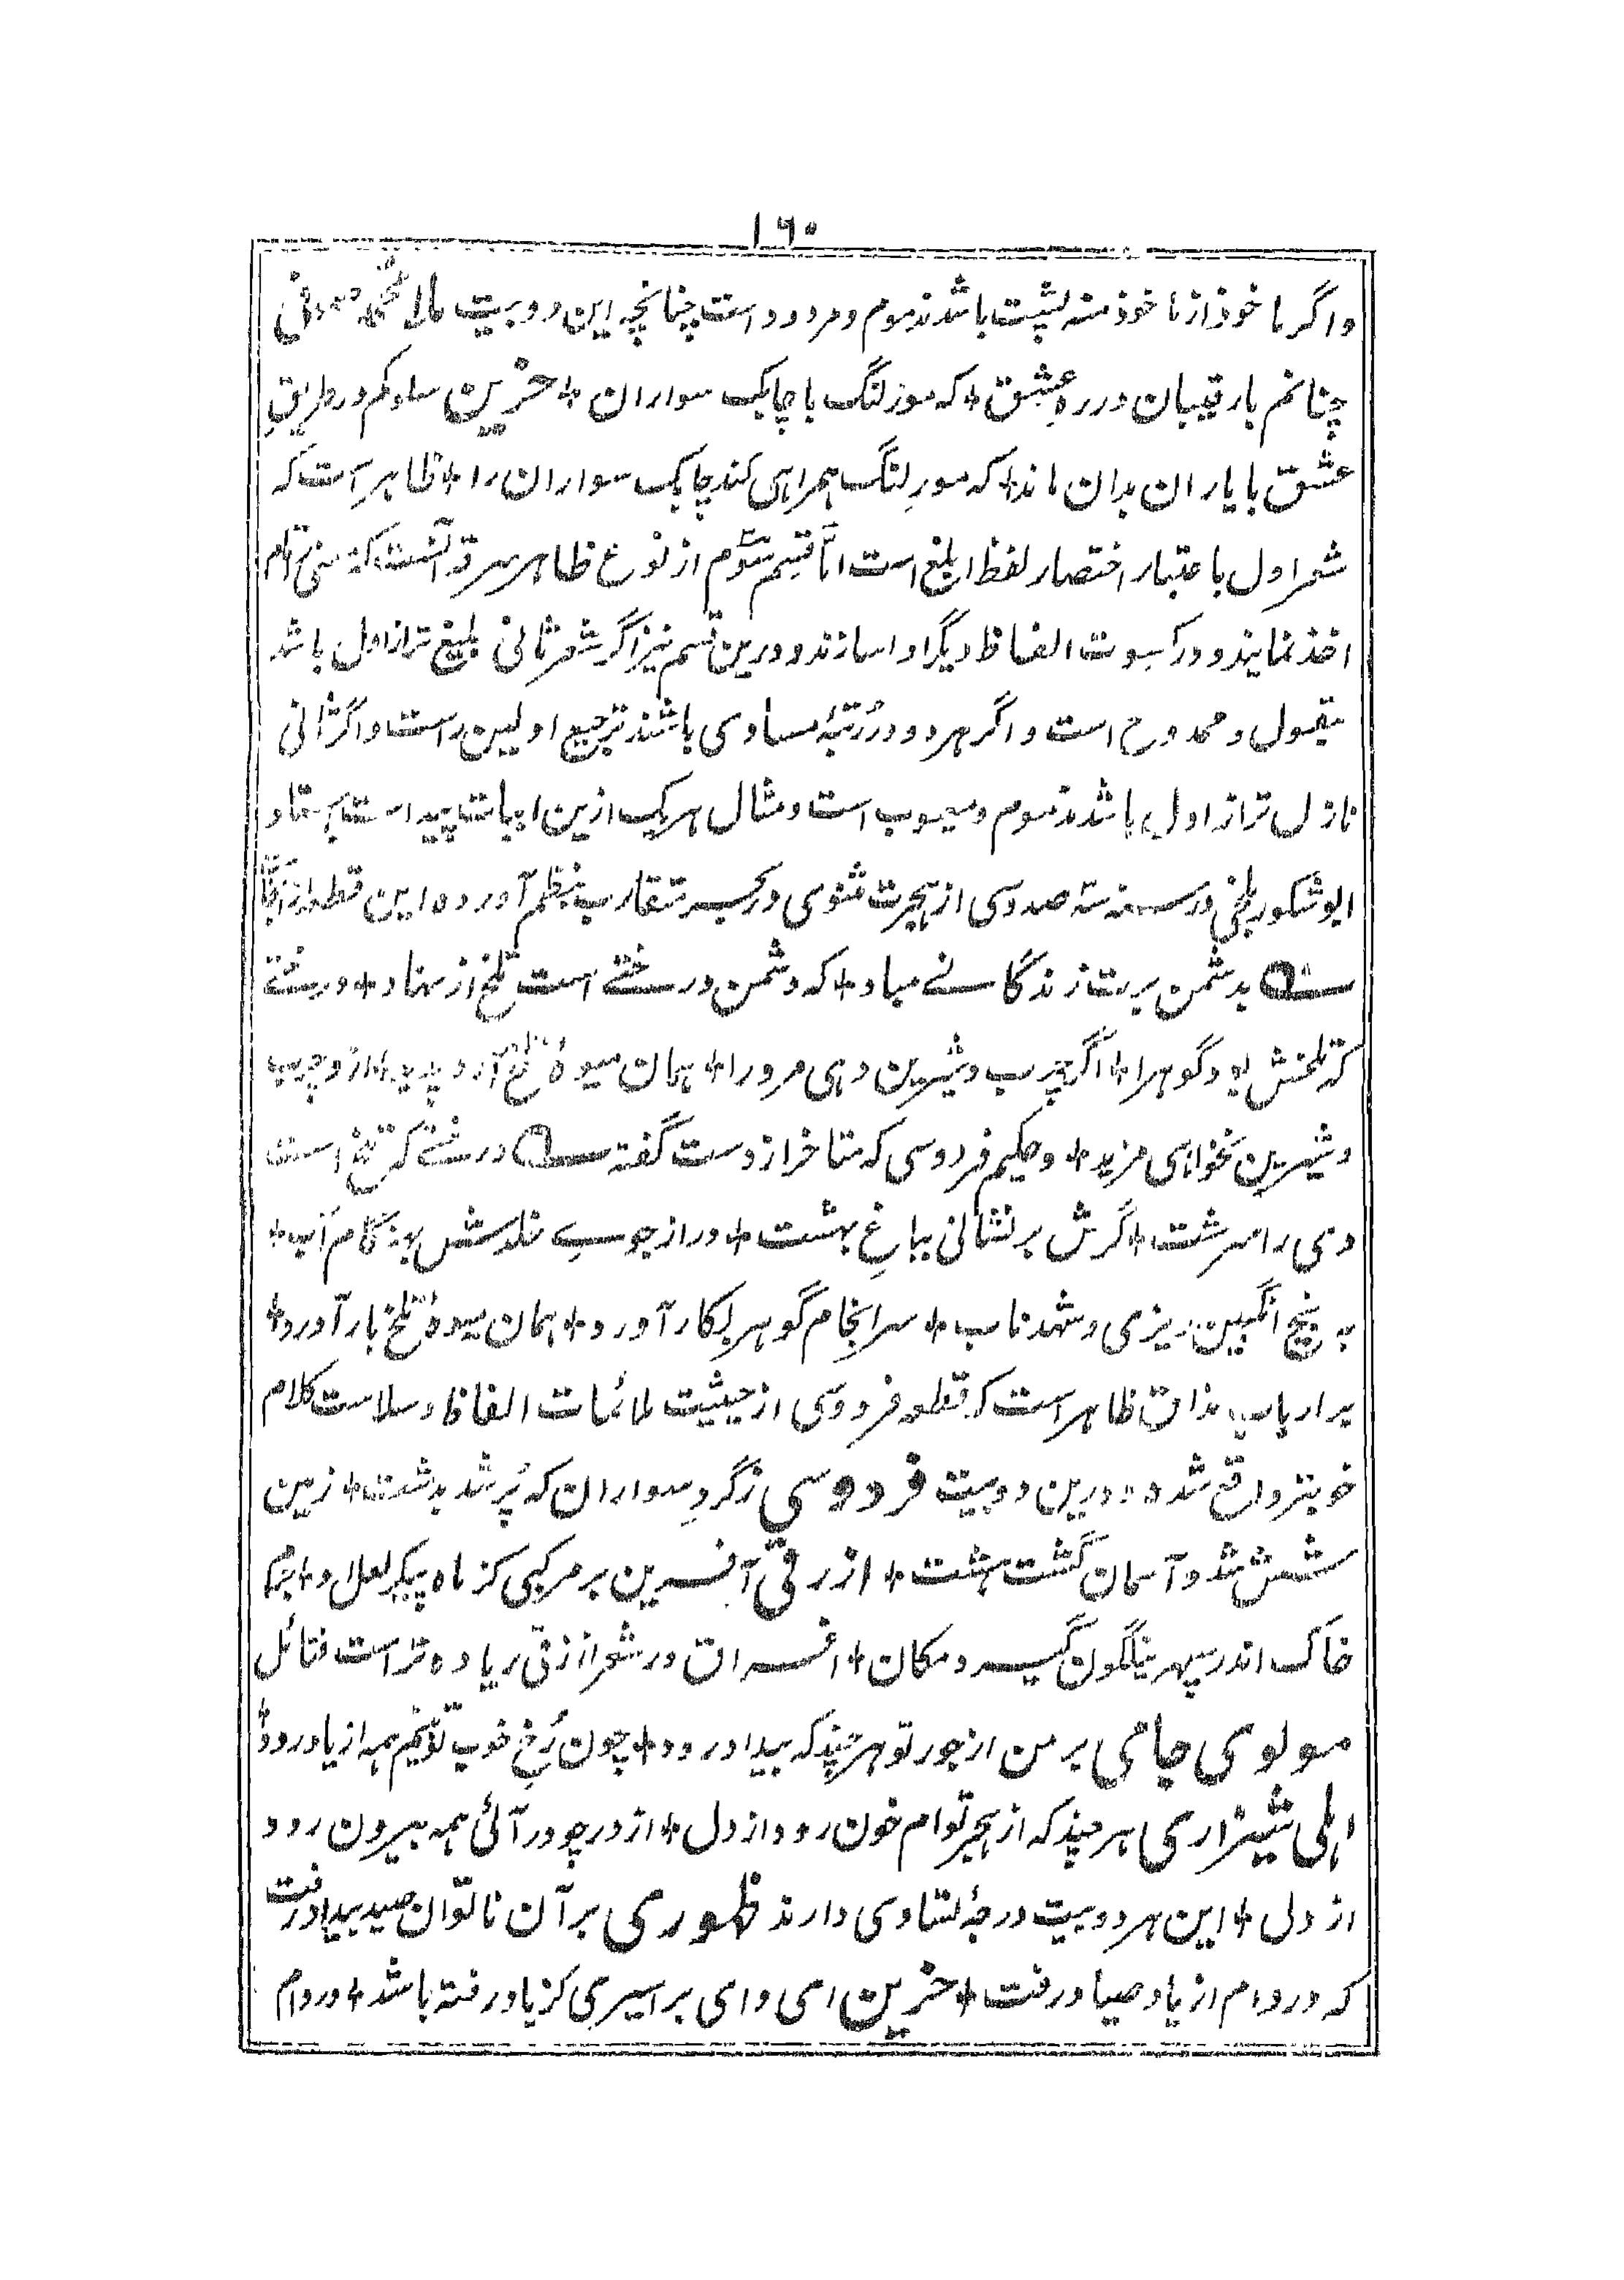 ۱۶۰
واگر ماخوذ از ماخوذ منه پست باشد مذموم و مردود است چنانچه این دو بیت ملا محمد صوفی
چنانم با رقیبان در ره عشق + که مور لنگ با چابک سواران + حزین سلوکم در طریقِ
عشق با یاران بدان ماند + که مورِ لنگ همراهی کند چابک سواران را + ظاهر است که
شعر اول باعتبار اختصار لفظ ابلغ است امّا قسم سوّم از نوع ظاهر سرقه آنست که معنی تمام
اخذ نمایند و در کسوت الفاظ دیگر ادا سازند و درین قسم نیز اگر شعر ثانی بلیغ تر از اول باشد
مقبول و ممدوح است و اگر هر دو در رُتبهٔ مساوی باشند ترجیح اولین راست و اگر ثانی
نازل تر از اول باشد مذموم و معیوب است و مثال هر یک ازین ابیات پیداست استاد
ابوشکور بلخی در سنه سه صد و سی از هجرت مثنوی در بحر متقارب بنظم آورده این قطعه از آنجا
ست بدشمن برت زندگانے مباد + که دشمن درختے است تلخ از نهاد + درختے
که تلخش بود گوهرا + اگر چرب و شیرین دهی مرورا + همان میوهٔ تلخ آرد پدید + ازو چرب
و شیرین نخواهی مزید + و حکیم فردوسی که متاخر ازوست گفته ست درختے که تلخ است
وی را سرشت + گرش برنشانی بباغِ بهشت + ور از جوے خلدش بهنگام آب +
به بیخ انگبین ریزی و شهد ناب + سرانجام گوهر بکار آورد + همان میوهٔ تلخ بار آورد +
بر ارباب مذاق ظاهر است که قطعه فردوسی از حیثیت ملائمات الفاظ و سلاست کلام
خوبتر واقع شده و درین دو بیت فردوسی زگردِ سواران که پُر شد بدشت + زمین
شش شد و آسمان گشت هشت + ازرقی آفرین بر مرکبی کز ماه پیکر لعل او +
خاک اندر سپهر نیلگون گیرد مکان + اغراق در شعر ازرقی زیاده تر است فتائل
مولوی جامی بر من از جور تو هر چند که بیداد رود + چون رُخِ خوب تو بینم همه از یاد رود
اهلی شیرازی هر چند که از هجر توام خون رود از دل + از در چو در آئی همه بیرون رود
از دل + این هر دو بیت درجهٔ تساوی دارند ظهوری بر آن ناتوان صید بیداد رفت
که در دام از یاد صیاد رفت + حزین ای وای بر اسیری کز یاد رفته باشد + در دام